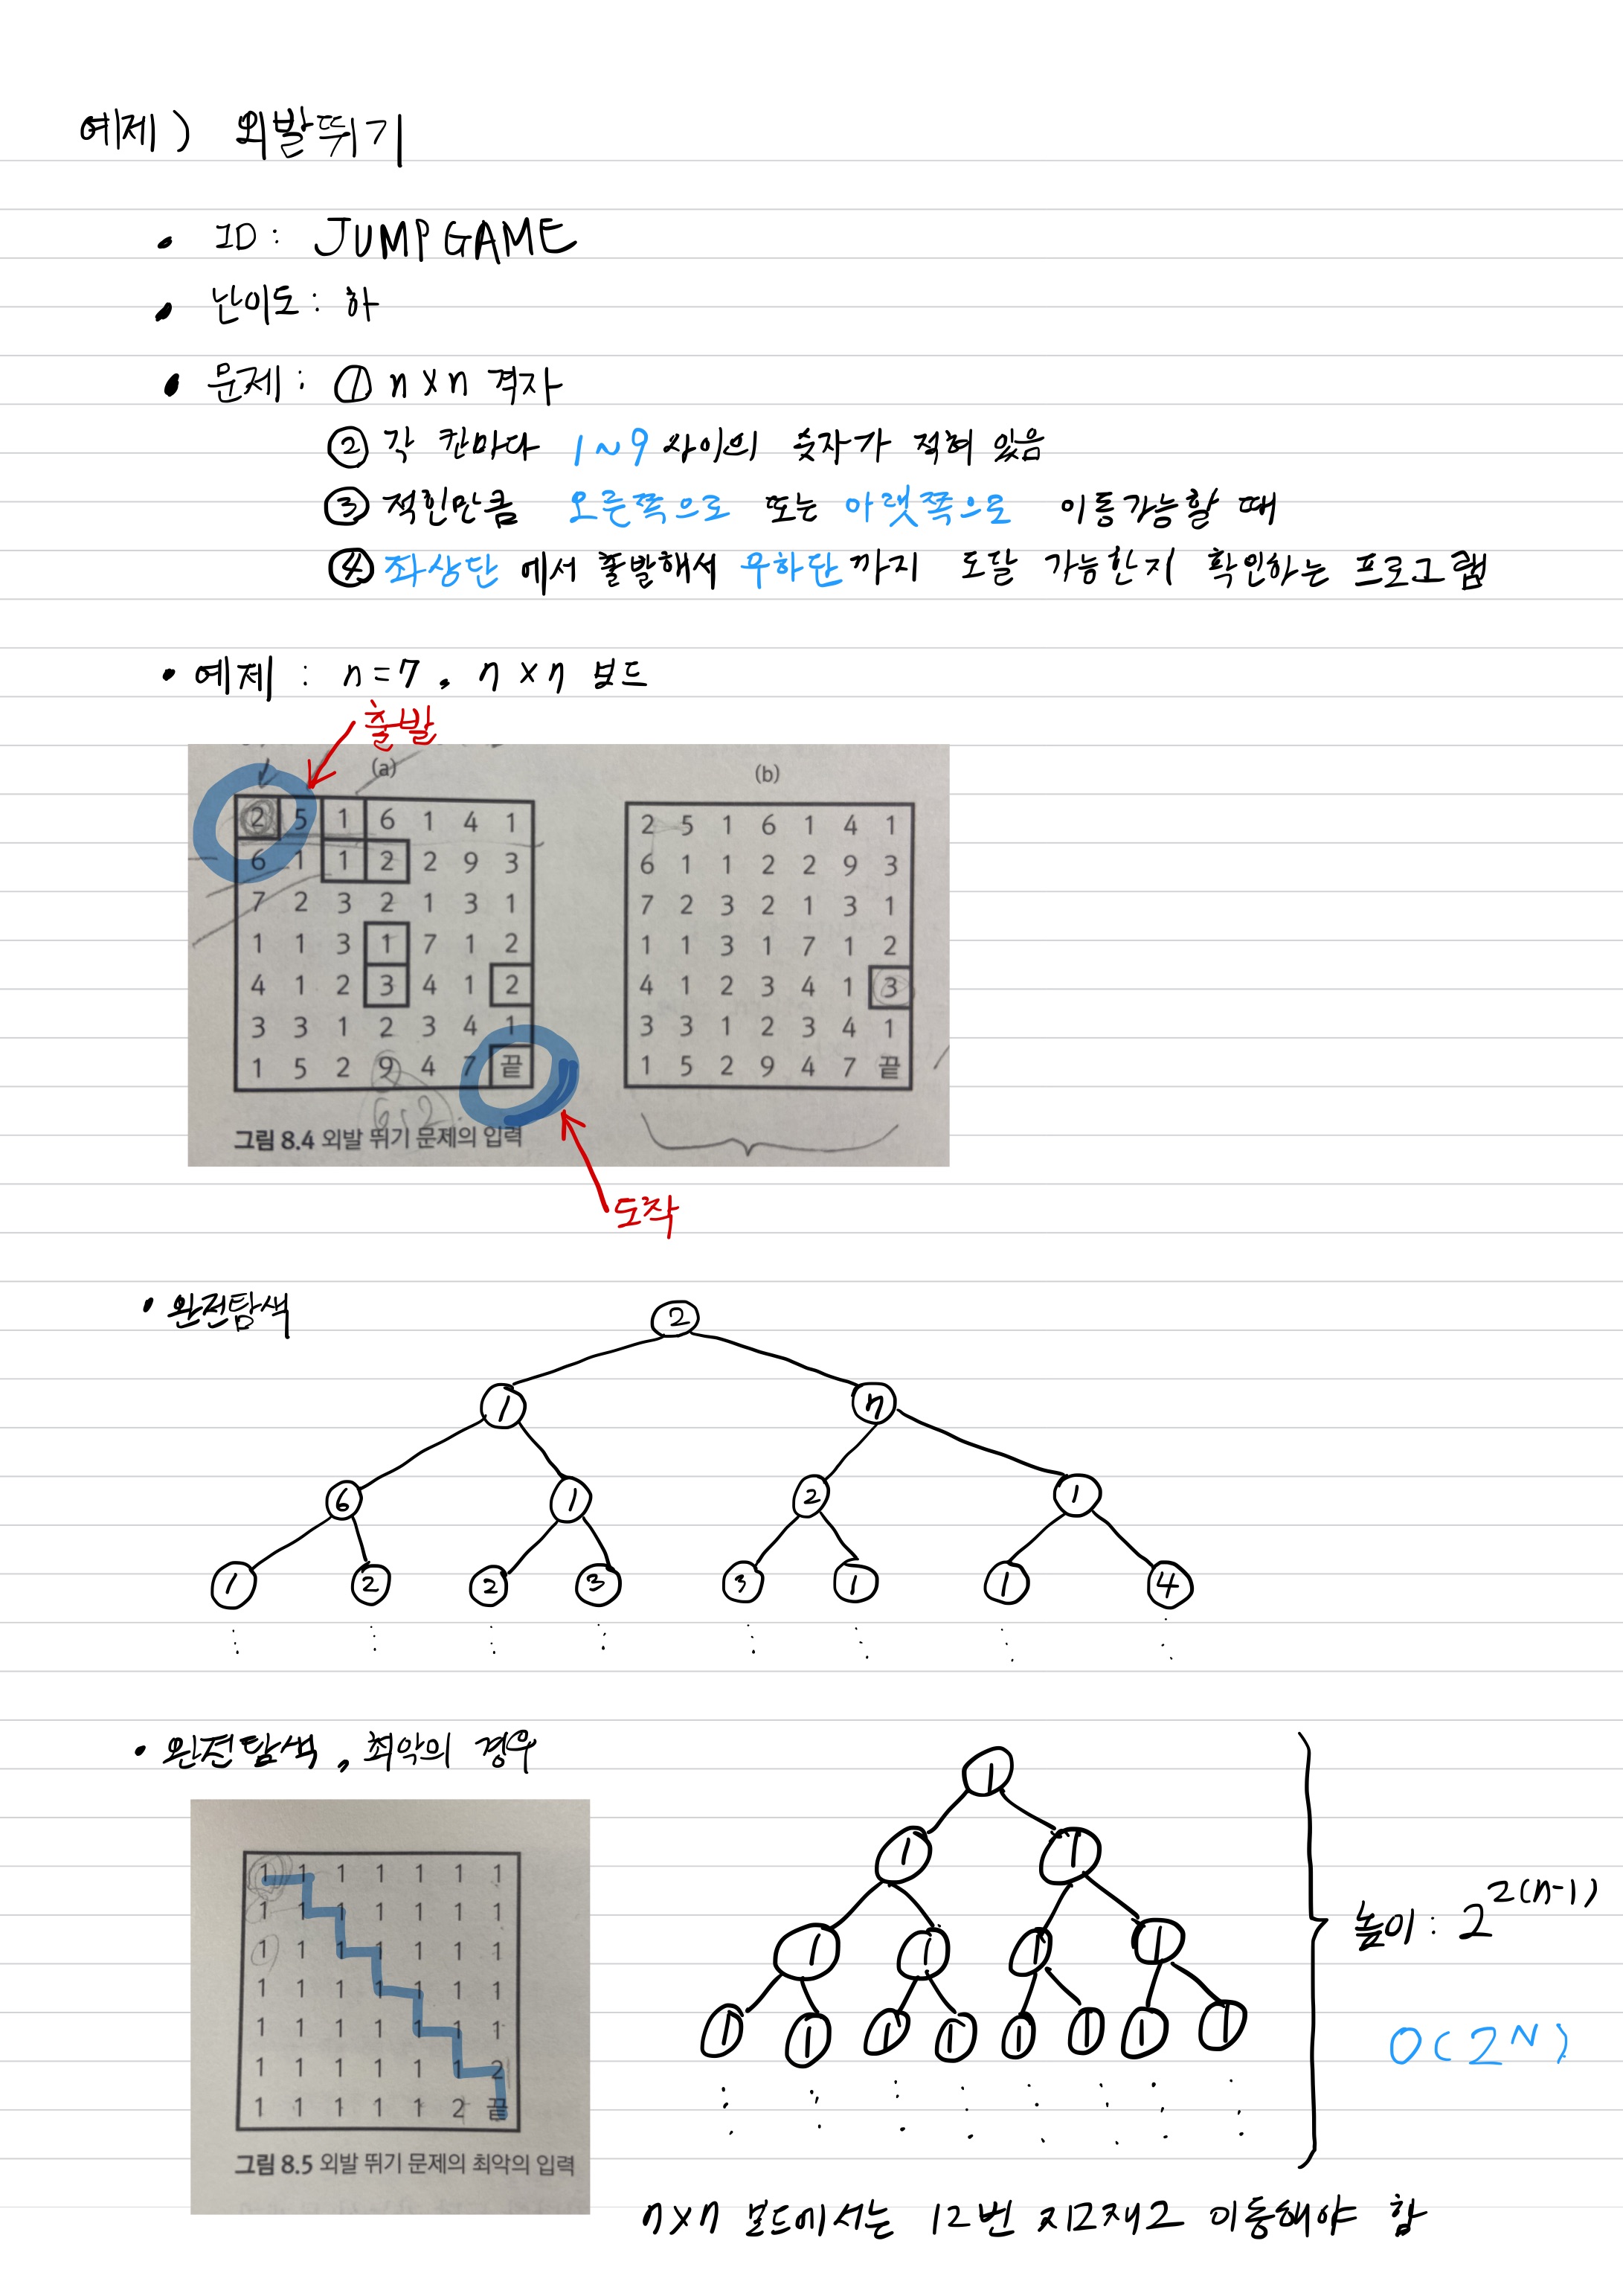 예제) 외발뛰기
• ID: JUMPGAME
• 난이도: 하
• 문제: ① n×n 격자
② 각 칸마다 1~9 사이의 숫자가 적혀 있음
③ 적힌만큼 오른쪽으로 또는 아랫쪽으로 이동가능할 때
④ 좌상단에서 출발해서 우하단까지 도달 가능한지 확인하는 프로그램
• 예제: n=7, n×n 보드
출발
(a)
2 5 1 6 1 4 1
6 1 1 2 2 9 3
7 2 3 2 1 3 1
1 1 3 1 7 1 2
4 1 2 3 4 1 2
3 3 1 2 3 4 1
1 5 2 9 4 7 끝
(b)
2 5 1 6 1 4 1
6 1 1 2 2 9 3
7 2 3 2 1 3 1
1 1 3 1 7 1 2
4 1 2 3 4 1 3
3 3 1 2 3 4 1
1 5 2 9 4 7 끝
6, 2
그림 8.4 외발 뛰기 문제의 입력
도착
• 완전탐색
2
1 7
6 1 2 1
1 2 2 3 3 1 1 4
• 완전탐색, 최악의 경우
1 1 1 1 1 1 1
1 1 1 1 1 1 1
1 1 1 1 1 1 1
1 1 1 1 1 1 1
1 1 1 1 1 1 1
1 1 1 1 1 1 2
1 1 1 1 1 2 끝
그림 8.5 외발 뛰기 문제의 최악의 입력
1
1 1
1 1 1 1
1 1 1 1 1 1 1 1
높이: 2^2(n-1)
O(2^N)
n×n 보드에서는 12번 지그재그 이동해야 함